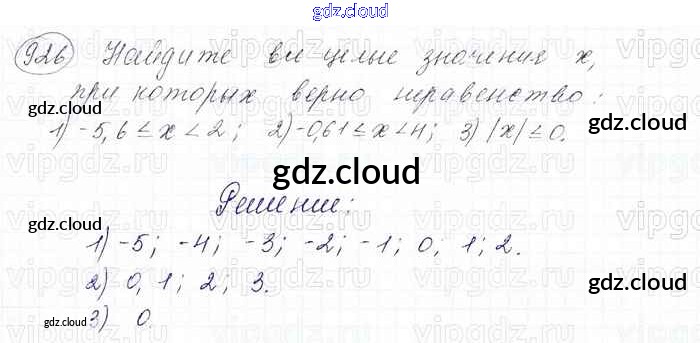 gdz.cloud
926 Найдите все целые значения x,
при которых верно неравенство:
1) -5,6 ≤ x < 2; 2) -0,61 ≤ x < 4; 3) |x| ≤ 0.
gdz.cloud
gdz.cloud
gdz.cloud
Решение:
1) -5; -4; -3; -2; -1; 0, 1; 2.
2) 0, 1; 2; 3.
gdz.cloud
gdz.cloud
3) 0.
vipgdz.ru